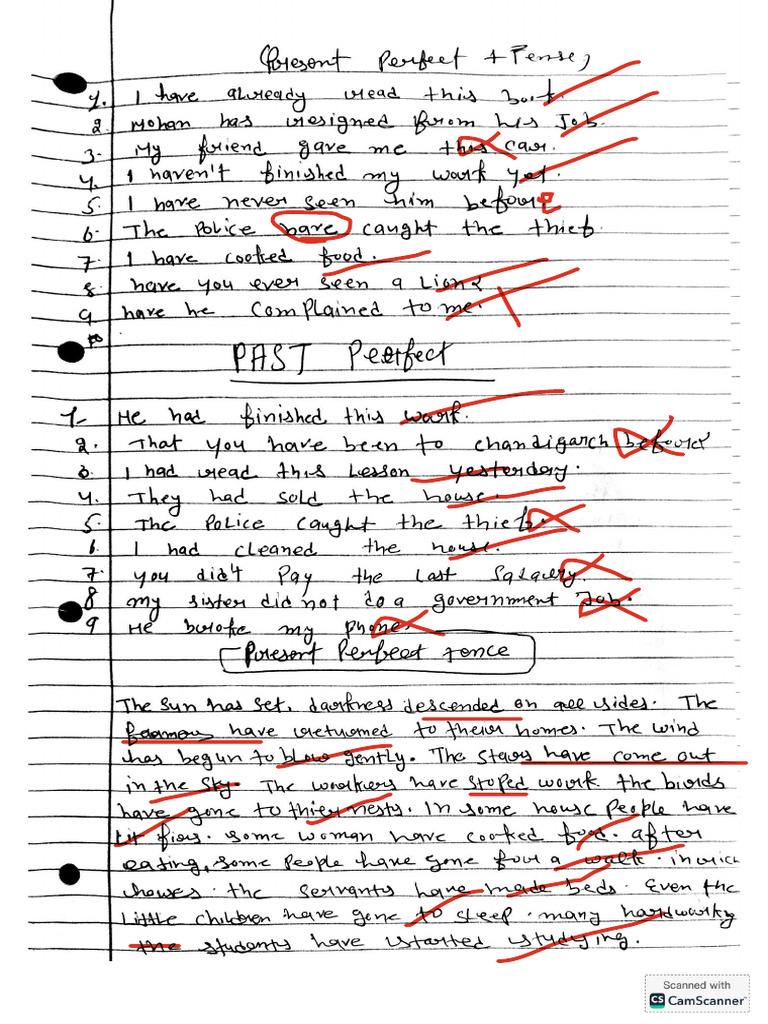 Present Perfect Tense
1. I have already read this book.
2. Mohan has resigned from his Job.
3. My friend gave me this car.
4. I haven't finished my work yet.
5. I have never seen him before
6. The Police have caught the thief.
7. I have cooked food.
8. have you ever seen a Lion?
9 have he complained to me.
PAST Perfect
1- He had finished this work.
2. That you have been to chandigarh before
3. I had read this Lesson yesterday.
4. They had sold the house.
5. The Police caught the thief.
6. I had cleaned the house.
7. you didn't Pay the Last Salary.
8 my sister did not do a government Job.
9 He broke my phone.
Present Perfect tence
The Sun has set, darkness descended on all sides. The
have returned to their homes. The wind
has begun to blow gently. The stars have come out
in the sky. The workers have stoped work the birds
have gone to thier nests. In some house People have
lit fires. Some woman have cooked food. after
eating, some People have gone four a walk. in rich
howses the servants have made beds. Even the
Little children have gone to sleep. many hardworky
the students have started studying.
Scanned with
CS CamScanner